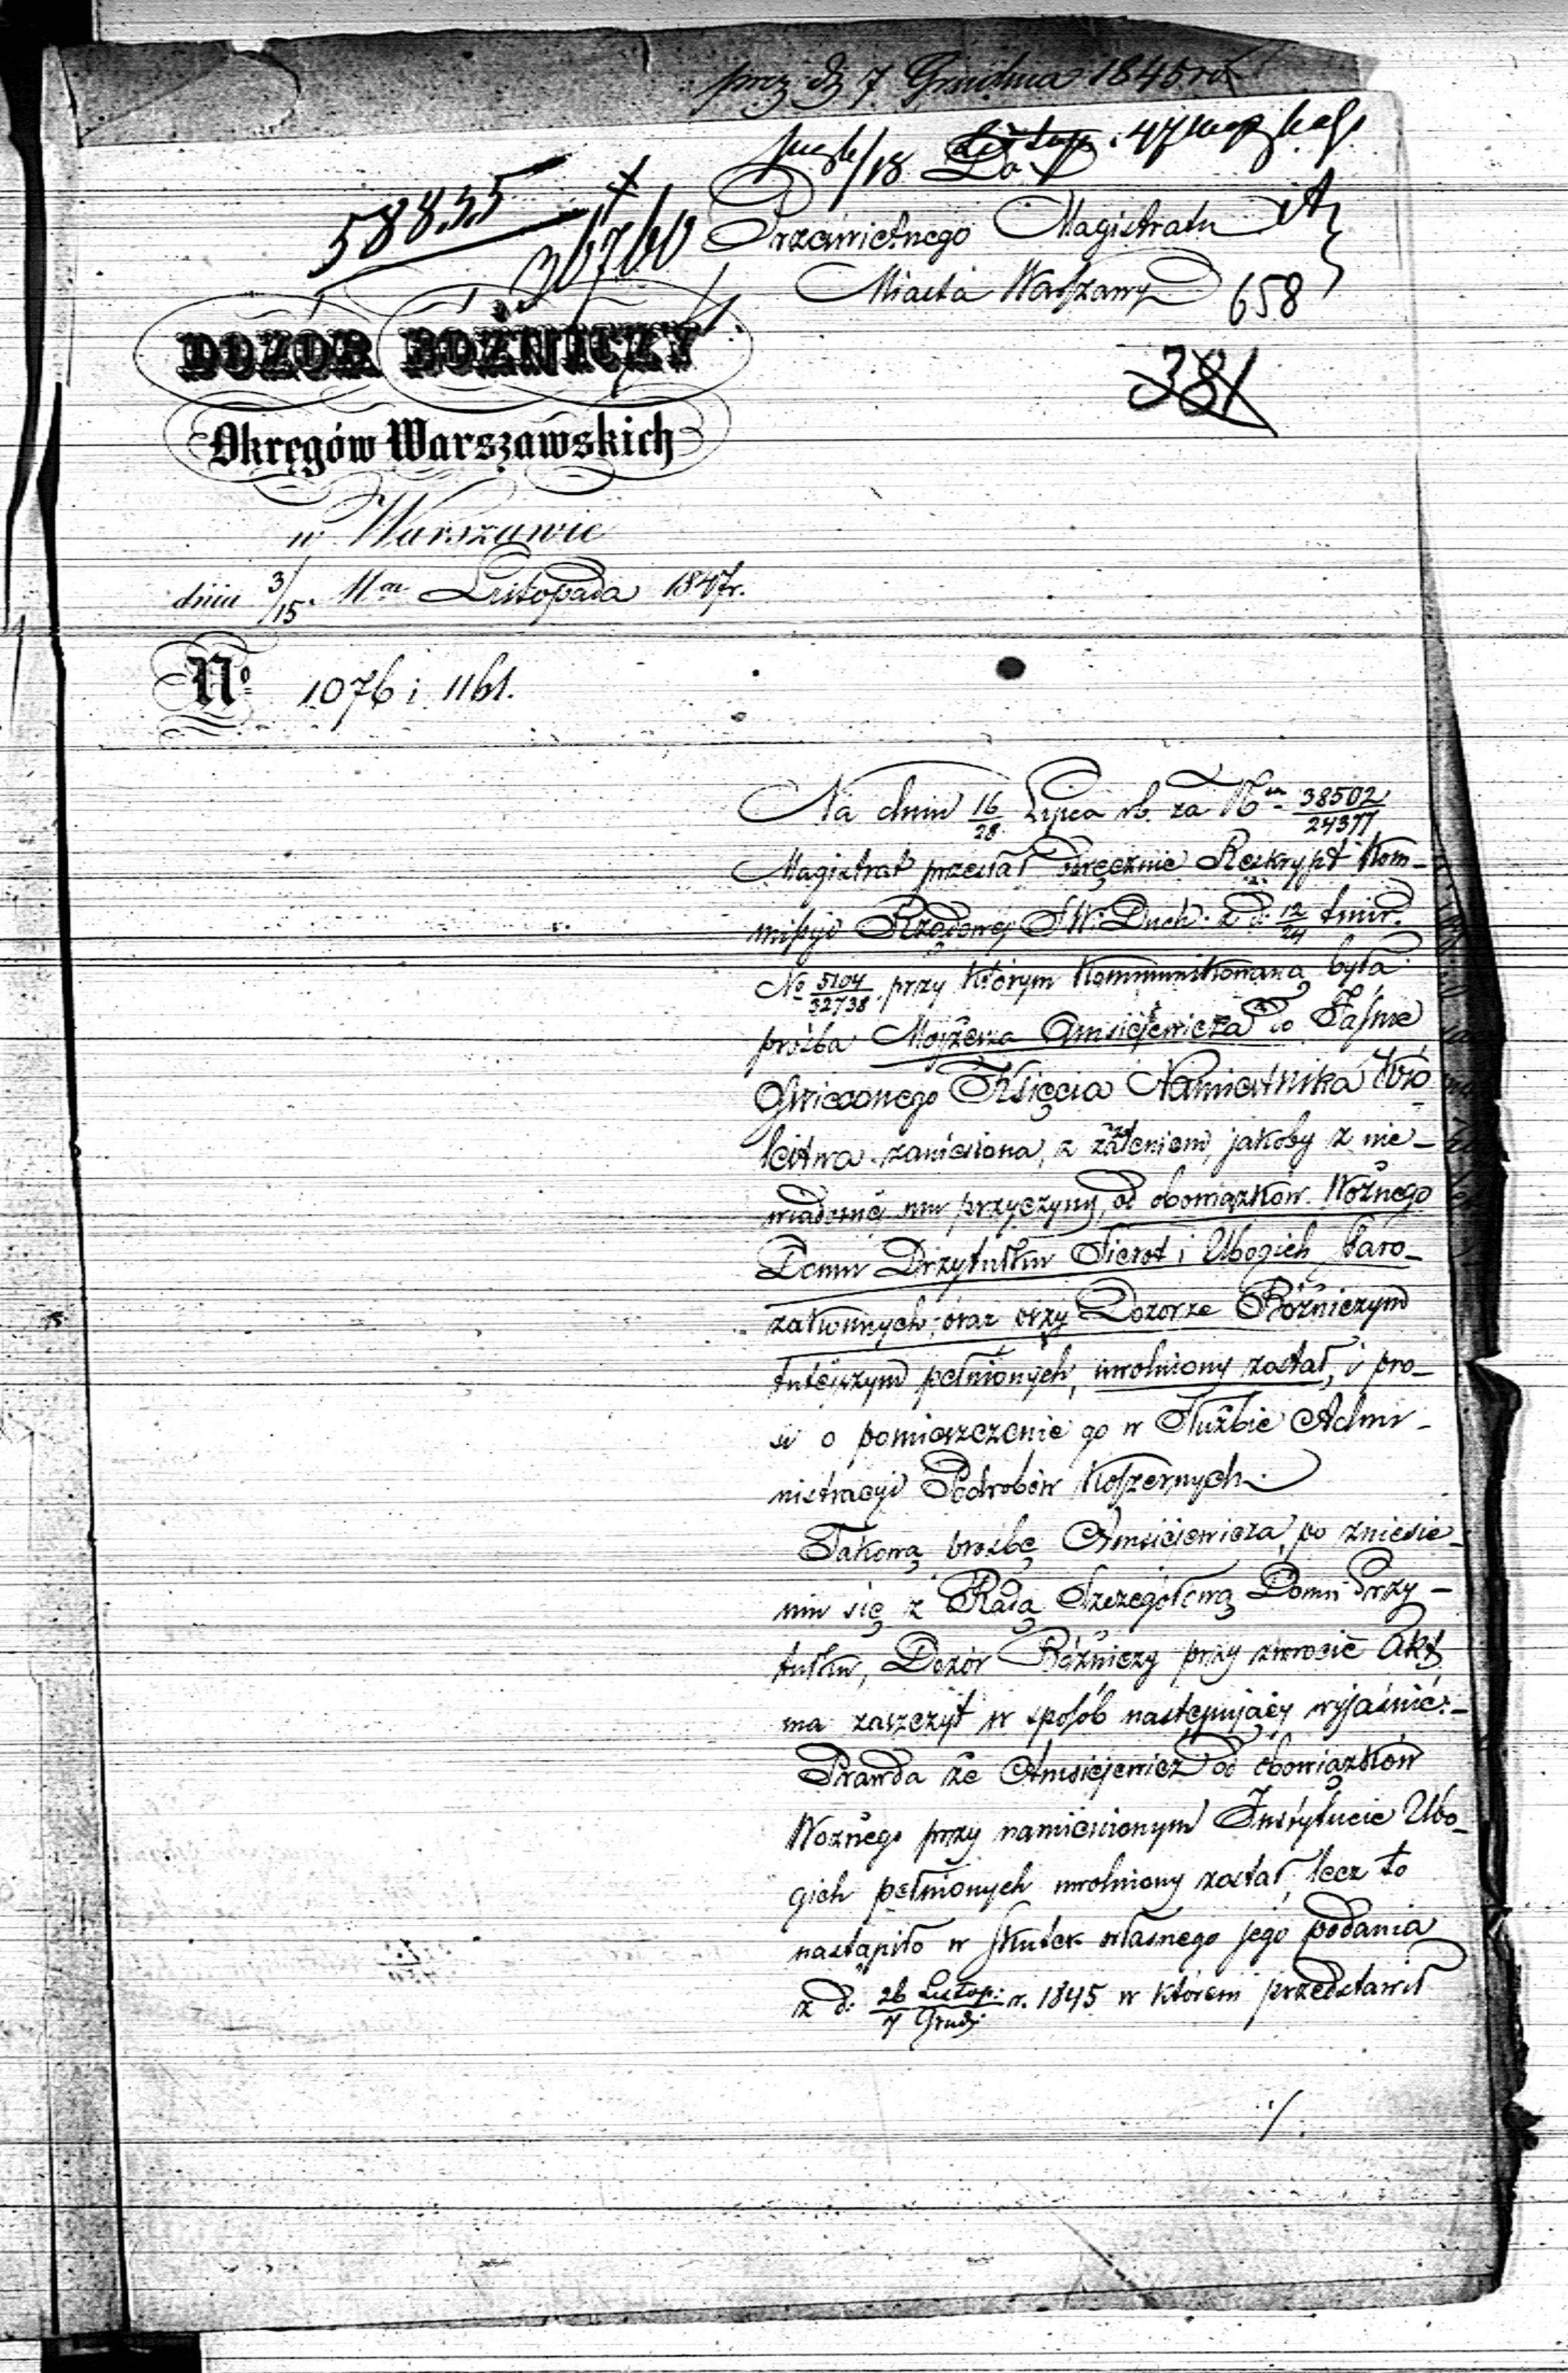 prez dz 7 Grudnia 1845 ro
58835
36760
Do
Prześwietnego Magistratu
Miasta Warszawy
658
381
DOZÓR BÓŻNICZY
Okręgów Warszawskich
w Warszawie
dnia 3/15 Listopada 1847r.
No 1076 i 1161.
Na dniu 16/28 Lipca rb. za No 38502/24377
Magistrat przesłał odręcznie Reskrypt Kom-
missyi Rządowej S.W. Duch. z d. 12/24 tmir.
No 5104/32738 przy którym kommunikowana była
prośba Mojżesza Amsiejewicza do Jaśnie
Oświeconego Księcia Namiestnika Kró-
lestwa zaniesiona, z żaleniem, jakoby z nie-
wiadomej mu przyczyny, od obowiązków Woźnego
Domu Przytułku Sierot i Ubogich Staro-
zakonnych, oraz przy Dozorze Bóżniczym
tutejszym pełnionych, uwolniony został, i pro-
si o pomieszczenie go w Służbie Admi-
nistracyi Podrobów Koszernych.
Takową prośbę Amsiejewicza, po zniesie-
niu się z Radą Szczegółową Domu Przy-
tułku, Dozór Bóżniczy przy zwrocie Akt
ma zaszczyt w sposób następujący wyjaśnić:-
Prawda że Amsiejewicz od obowiązków
Woźnego przy namienionym Instytucie Ubo-
gich pełnionych uwolniony został, lecz to
nastąpiło w skutek własnego jego podania
z d. 26 Listop:/7 Grudz: r. 1845 w którem przedstawił
./.